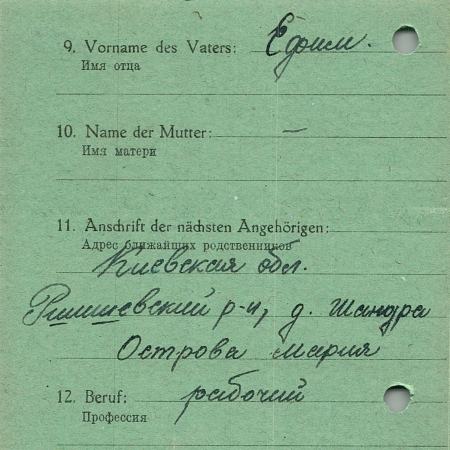 9. Vorname des Vaters: Ефим.
Имя отца
10. Name der Mutter: —
Имя матери
11. Anschrift der nächsten Angehörigen:
Адрес ближайших родственников
Киевская обл.
р-н, д. Шандра
Острова Мария
12. Beruf: рабочий
Профессия